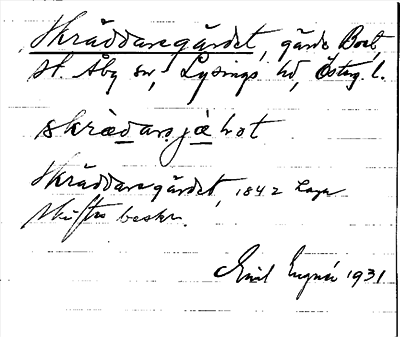 Skräddaregärdet, gärde, Boet,
St. Åby sn, Lysings hd, Östrg. l.
skrädarsjähot
Skräddaregärdet, 1842 Laga
Skiftes beskr.
Emil 1931